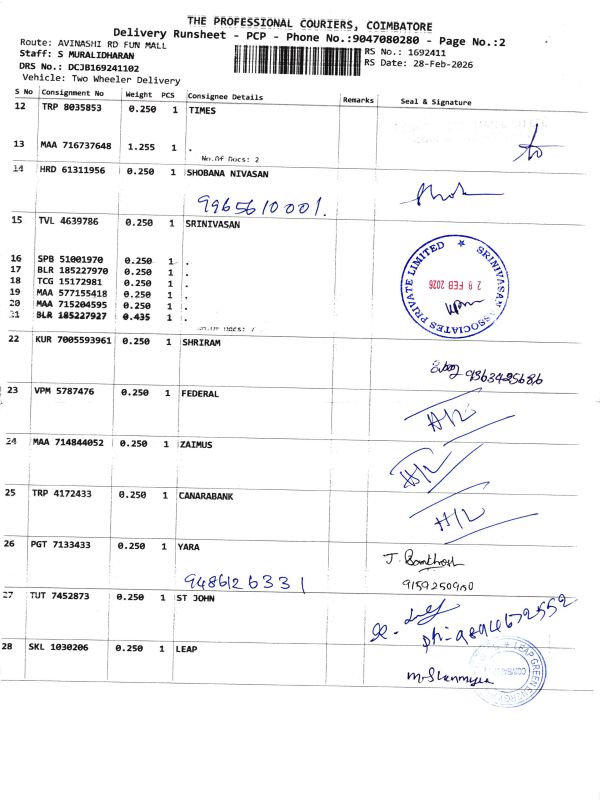 THE PROFESSIONAL COURIERS, COIMBATORE
Delivery Runsheet - PCP - Phone No.:9047080280 - Page No.:2
Route: AVINASHI RD FUN MALL
RS No.: 1692411
Staff: S MURALIDHARAN
RS Date: 28-Feb-2026
DRS No.: DCJB169241102
Vehicle: Two Wheeler Delivery
S No Consignment No Weight PCS Consignee Details Remarks Seal & Signature
12 TRP 8035853 0.250 1 TIMES
13 MAA 716737648 1.255 1 .
No.Of Docs: 2
14 HRD 61311956 0.250 1 SHOBANA NIVASAN
9965610001.
15 TVL 4639786 0.250 1 SRINIVASAN
16 SPB 51001970 0.250 1 .
17 BLR 185227970 0.250 1 .
18 TCG 15172981 0.250 1 .
19 MAA 577155418 0.250 1 .
20 MAA 715204595 0.250 1 .
21 BLR 185227927 0.435 1 .
No.Of Docs: 7
SRINIVASAN ASSOCIATES PRIVATE LIMITED
28 FEB 2026
22 KUR 7005593961 0.250 1 SHRIRAM
23 VPM 5787476 0.250 1 FEDERAL
H/L
24 MAA 714844052 0.250 1 ZAIMUS
H/L
25 TRP 4172433 0.250 1 CANARABANK
H/L
26 PGT 7133433 0.250 1 YARA
9486126331
9159250950
27 TUT 7452873 0.250 1 ST JOHN
28 SKL 1030206 0.250 1 LEAP
LEAP GREEN ENERGY